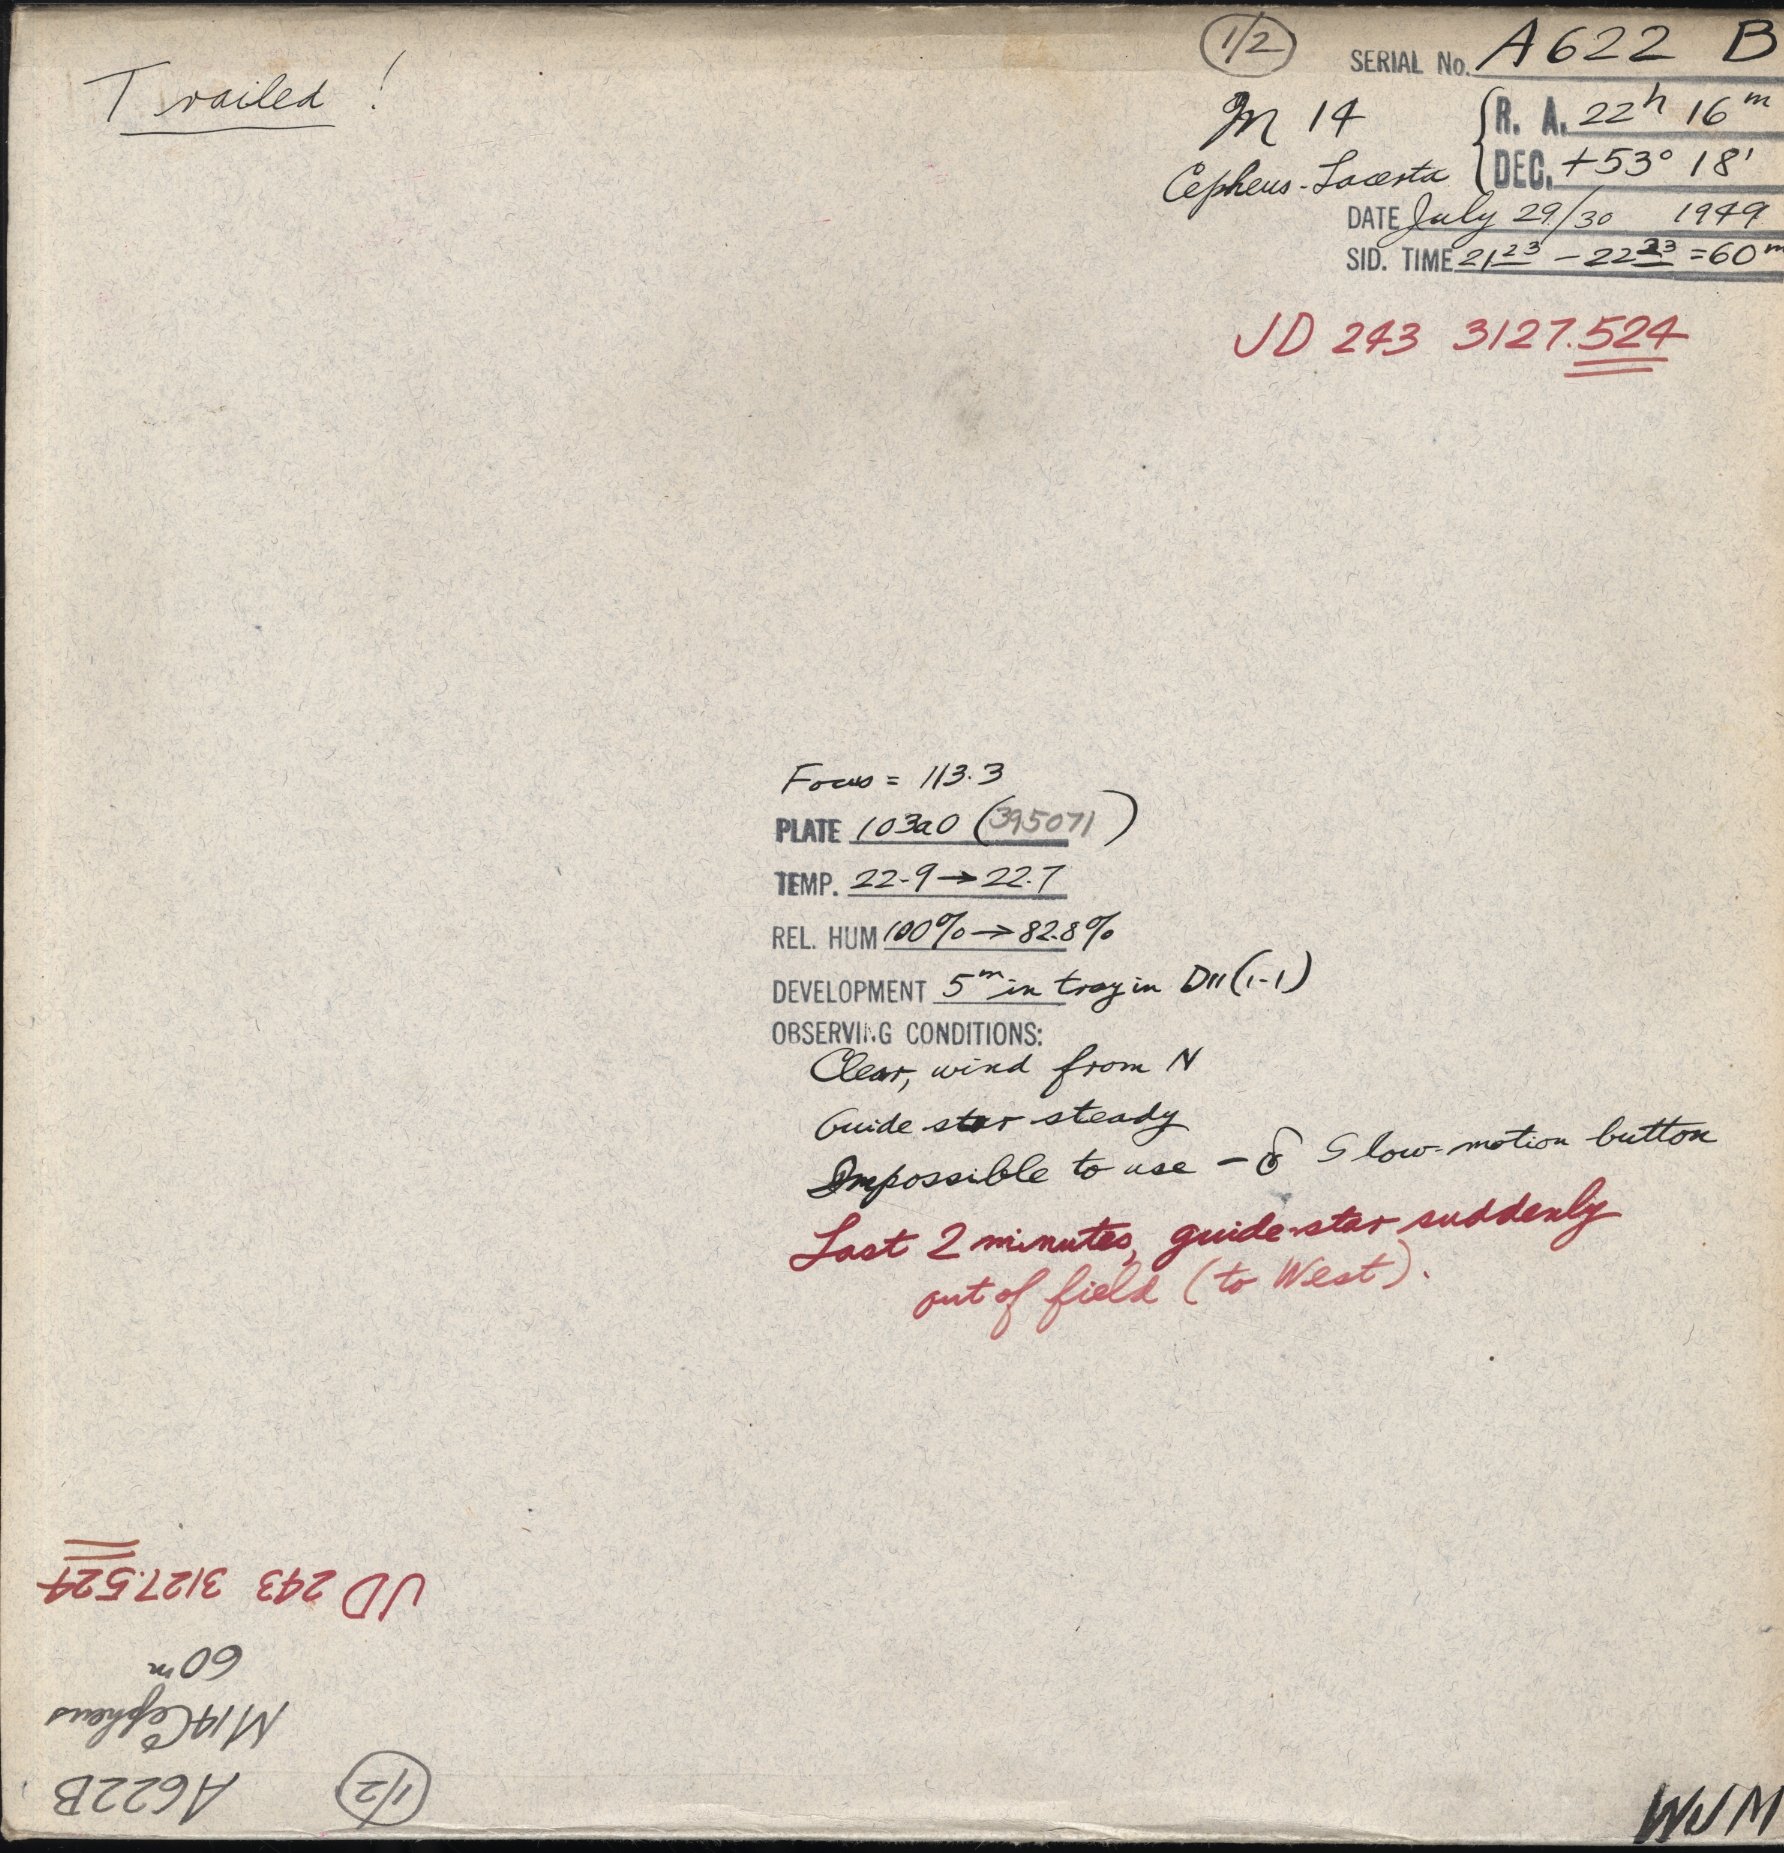 Trailed !
1/2
SERIAL No. A622 B
M 14
R. A. 22h 16m
Cepheus-Lacerta
DEC. +53° 18'
DATE July 29/30 1949
SID. TIME 21 23 – 22 23 = 60m
JD 243 3127.524
Focus = 113.3
PLATE 103aO (395071)
TEMP. 22.9 → 22.7
REL. HUM 100% → 82.8%
DEVELOPMENT 5m in tray in D11 (1-1)
OBSERVING CONDITIONS:
Clear, wind from N
Guide star steady
Impossible to use – δ Slow-motion button
Last 2 minutes, guide-star suddenly
out of field (to West).
1/2
A622B
M14 Cepheus
60m
JD 243 3127.524
WJM